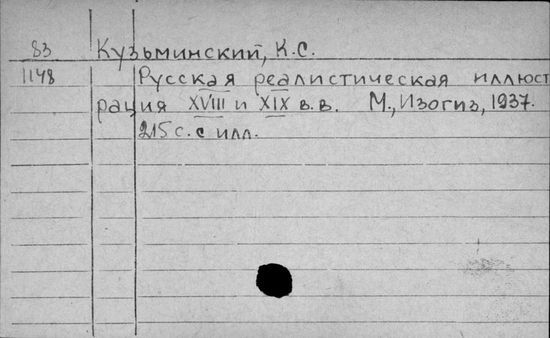 83 Кузьминский, К.С.
1148 Русская реалистическая иллюст
рация XVIII и XIX в.в. М., Изогиз, 1937.
215 с. с илл.